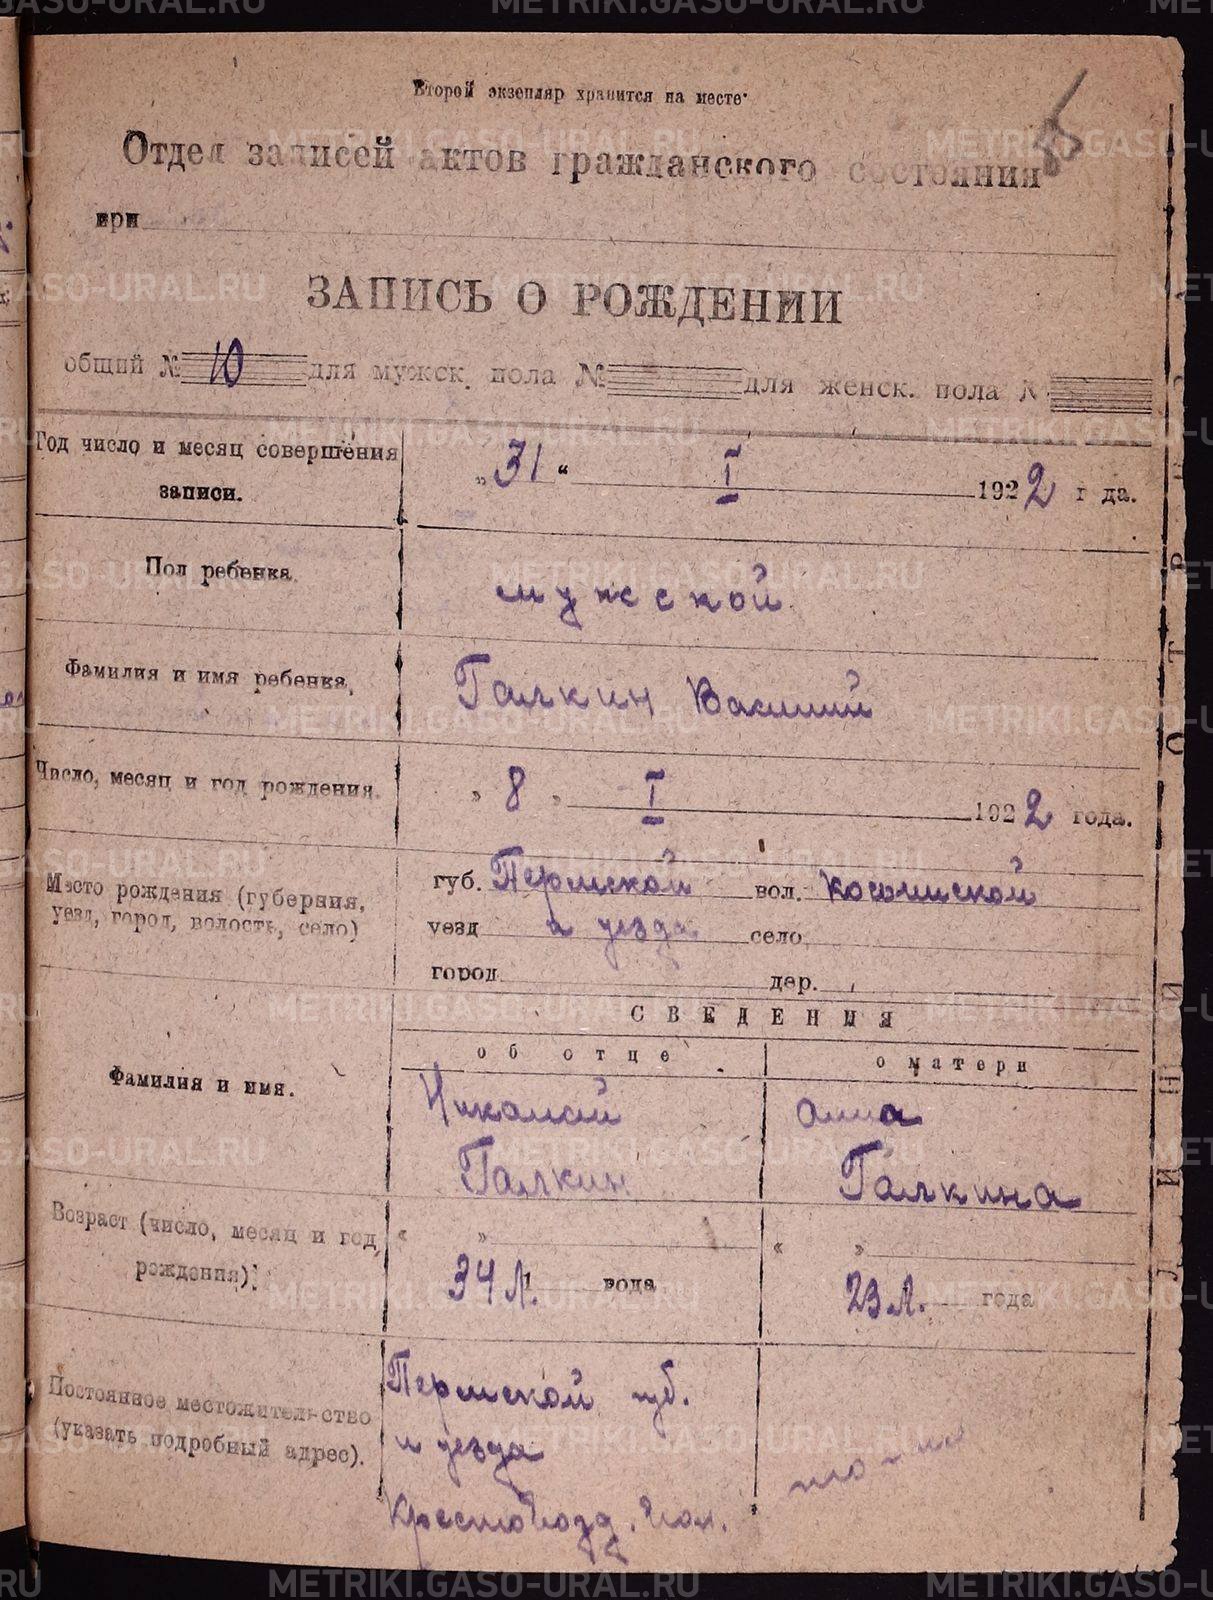 Второй экземпляр хранится на месте.
Отдел записей актов гражданского состояния
при
ЗАПИСЬ О РОЖДЕНИИ
общий № 10 для мужск. пола № для женск. пола №
Год число и месяц совершения „31“ I 1922 года.
записи.
Пол ребенка мужской
Фамилия и имя ребенка, Галкин Василий
Число, месяц и год рождения. „ 8 „ I 1922 года.
Место рождения (губерния, губ. Пермской вол.
уезд, город, волость, село) уезд и уезда село
город дер.
СВЕДЕНИЯ
об отце о матери
Фамилия и имя. Николай Анна
Галкин Галкина
Возраст (число, месяц и год « » « »
рождения). 34 л. года 23 л. года
Постоянное местожительство Пермской губ.
(указать подробный адрес). и уезда
Крестовозд. вол.
ОТР ЛИНИЙ
METRIKI.GASO-URAL.RU